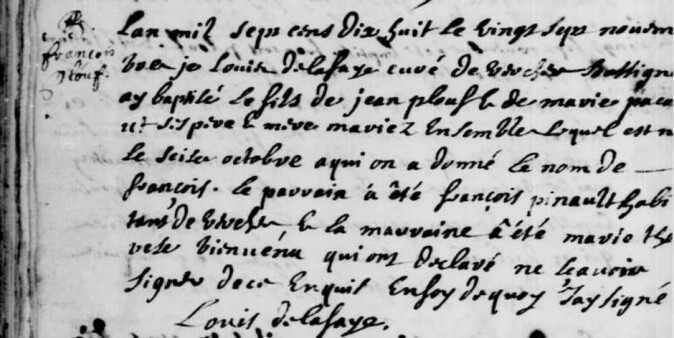 françois
Plouf.
Lan mil sept cens dix huit le vingt sept novem
bre je Louis delafaye curé de
ay baptisé le fils de jean plouf & de marie paca
ut ses pere & mere mariez Ensemble lequel est n
le seise octobre a qui on a donné le nom de
françois. le parrain a été françois pinault habi
tant de & la marraine a été marie the
rese bienvenu qui ont declaré ne scavoir
signer de ce Enquis En foy de quoy J'ay signé
Louis delafaye.